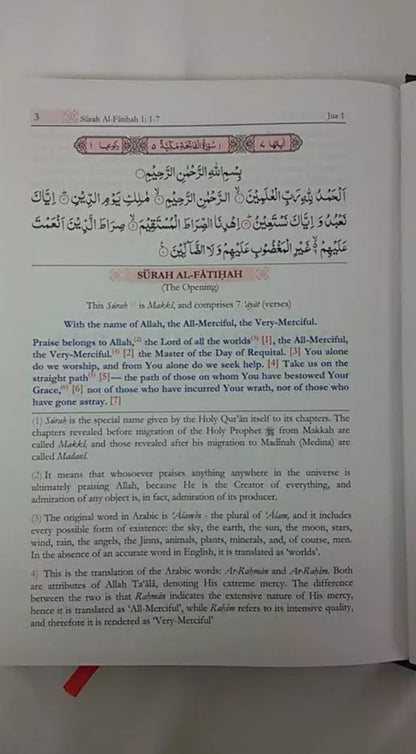 3 Sūrah Al-Fātiḥah 1: 1-7 Juz 1
اٰیاتہا ٧ ١ سُوْرَةُ الْفَاتِحَةِ مَكِّیَّةٌ ٥ رکوعہا ١
بِسْمِ اللّٰهِ الرَّحْمٰنِ الرَّحِیْمِ
اَلْحَمْدُ لِلّٰهِ رَبِّ الْعٰلَمِیْنَ الرَّحْمٰنِ الرَّحِیْمِ مٰلِكِ یَوْمِ الدِّیْنِ اِیَّاكَ
نَعْبُدُ وَ اِیَّاكَ نَسْتَعِیْنُ اِهْدِنَا الصِّرَاطَ الْمُسْتَقِیْمَ صِرَاطَ الَّذِیْنَ اَنْعَمْتَ
عَلَیْهِمْ غَیْرِ الْمَغْضُوْبِ عَلَیْهِمْ وَ لَا الضَّآلِّیْنَ
SŪRAH AL-FĀTIḤAH
(The Opening)
This Sūrah (1) is Makkī, and comprises 7 'āyāt (verses)
With the name of Allah, the All-Merciful, the Very-Merciful.
Praise belongs to Allah,(2) the Lord of all the worlds(3) [1], the All-Merciful,
the Very-Merciful.(4) [2] the Master of the Day of Requital. [3] You alone
do we worship, and from You alone do we seek help. [4] Take us on the
straight path(5) [5]— the path of those on whom You have bestowed Your
Grace,(6) [6] not of those who have incurred Your wrath, nor of those who
have gone astray. [7]
(1) Sūrah is the special name given by the Holy Qur'ān itself to its chapters. The
chapters revealed before migration of the Holy Prophet ﷺ from Makkah are
called Makkī, and those revealed after his migration to Madīnah (Medina) are
called Madanī.
(2) It means that whosoever praises anything anywhere in the universe is
ultimately praising Allah, because He is the Creator of everything, and
admiration of any object is, in fact, admiration of its producer.
(3) The original word in Arabic is 'Ālamīn - the plural of 'Ālam, and it includes
every possible form of existence: the sky, the earth, the sun, the moon, stars,
wind, rain, the angels, the Jinns, animals, plants, minerals, and, of course, men.
In the absence of an accurate word in English, it is translated as 'worlds'.
4) This is the translation of the Arabic words: Ar-Raḥmān and Ar-Raḥīm. Both
are attributes of Allah Ta'ālā, denoting His extreme mercy. The difference
between the two is that Raḥmān indicates the extensive nature of His mercy,
hence it is translated as 'All-Merciful', while Raḥīm refers to its intensive quality,
and therefore it is rendered as 'Very-Merciful'